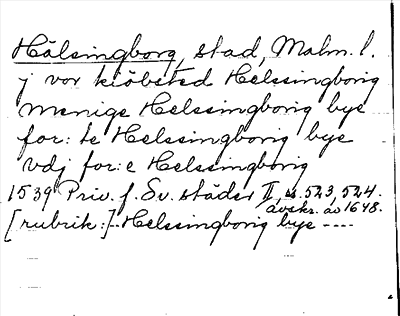 Hälsingborg, stad, Malm. l.
j vor kiöbsted Helssingborig
menige Helssingborig bye
for: te Helssingborig bye
vdj for: e Helssingborig
1539 Priv. f. Sv. städer II, s. 523, 524.
avskr. av 1648.
[rubrik:] -- Helssingborig bye ----